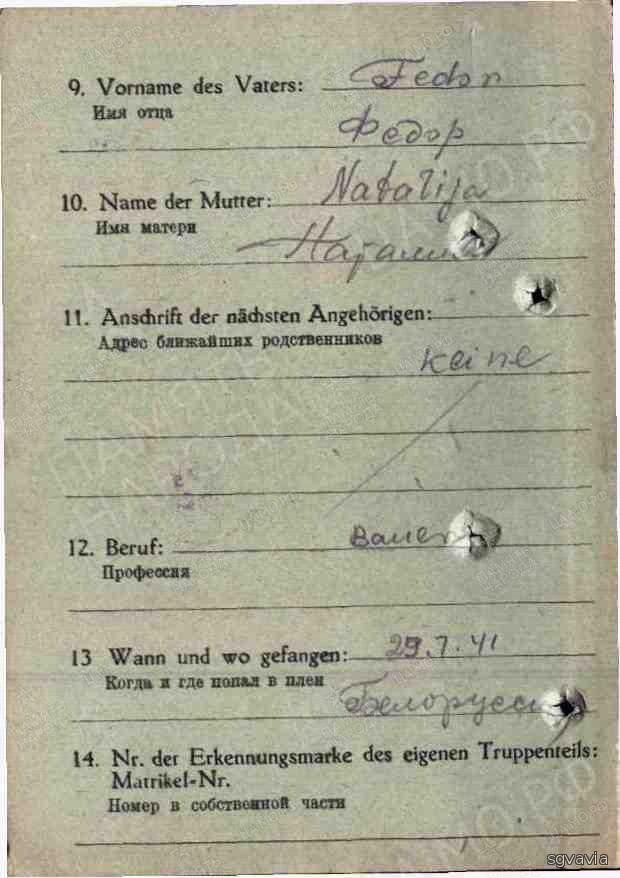 9. Vorname des Vaters: Fedor
Имя отца
Федор
10. Name der Mutter: Natalija
Имя матери
11. Anschrift der nächsten Angehörigen:
Адрес ближайших родственников
keine
12. Beruf: Bauer
Профессия
13 Wann und wo gefangen: 29.7.41
Когда и где попал в плен
14. Nr. der Erkennungsmarke des eigenen Truppenteils:
Matrikel-Nr.
Номер в собственной части
ПАМЯТЬ
НАРОДА
ЦАМО.РФ
sgvavia